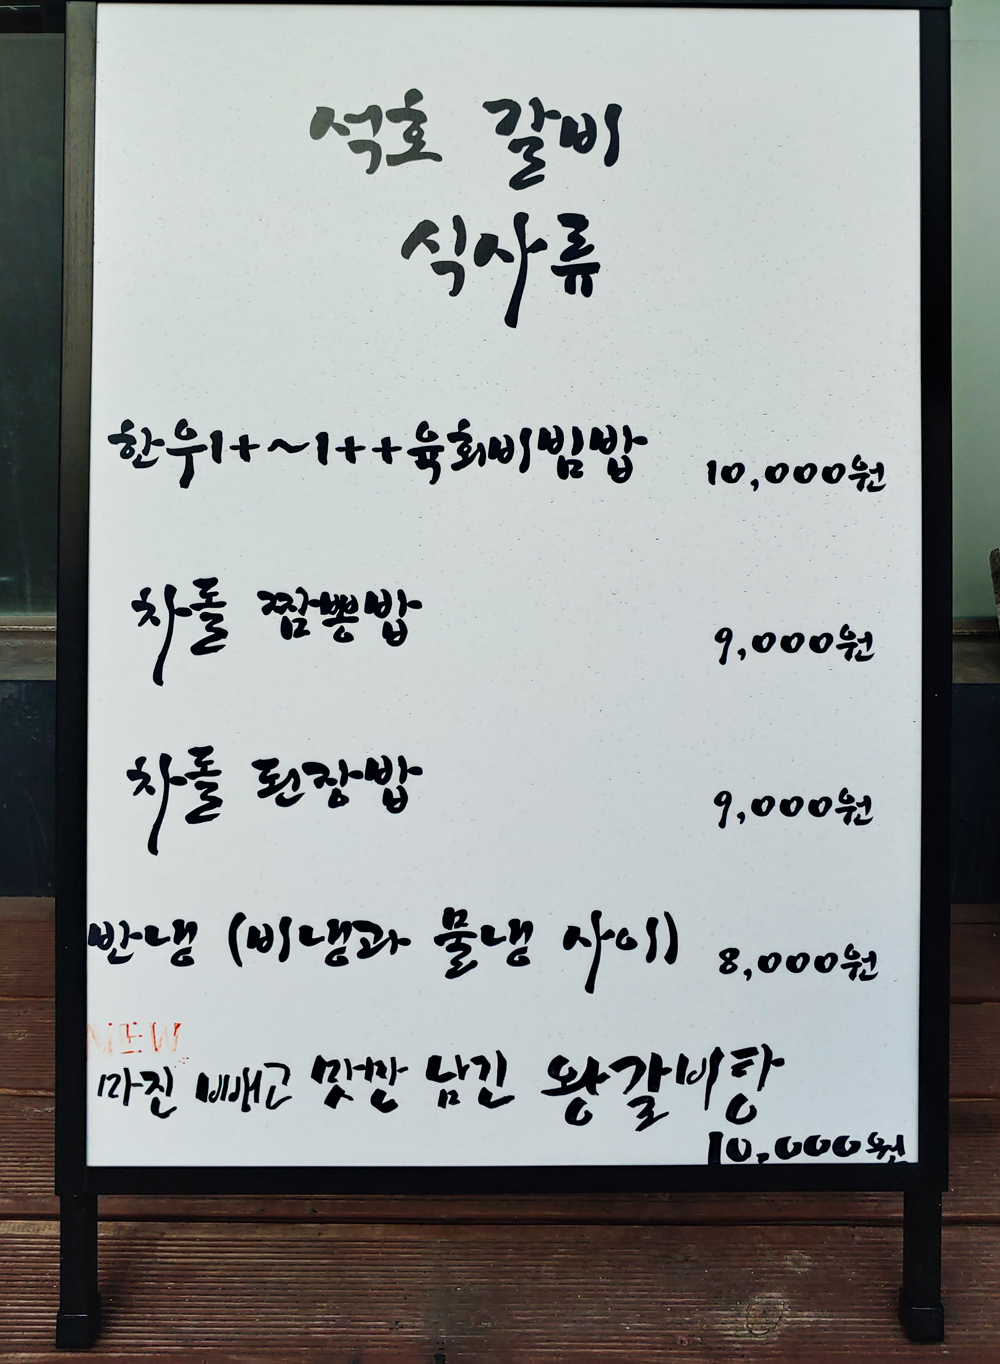 석호 갈비
식사류
한우1+~1++육회비빔밥 10,000원
차돌 짬뽕밥 9,000원
차돌 된장밥 9,000원
반냉 (비냉과 물냉 사이) 8,000원
NEW
마진 빼고 맛만 남긴 왕갈비탕
10,000원